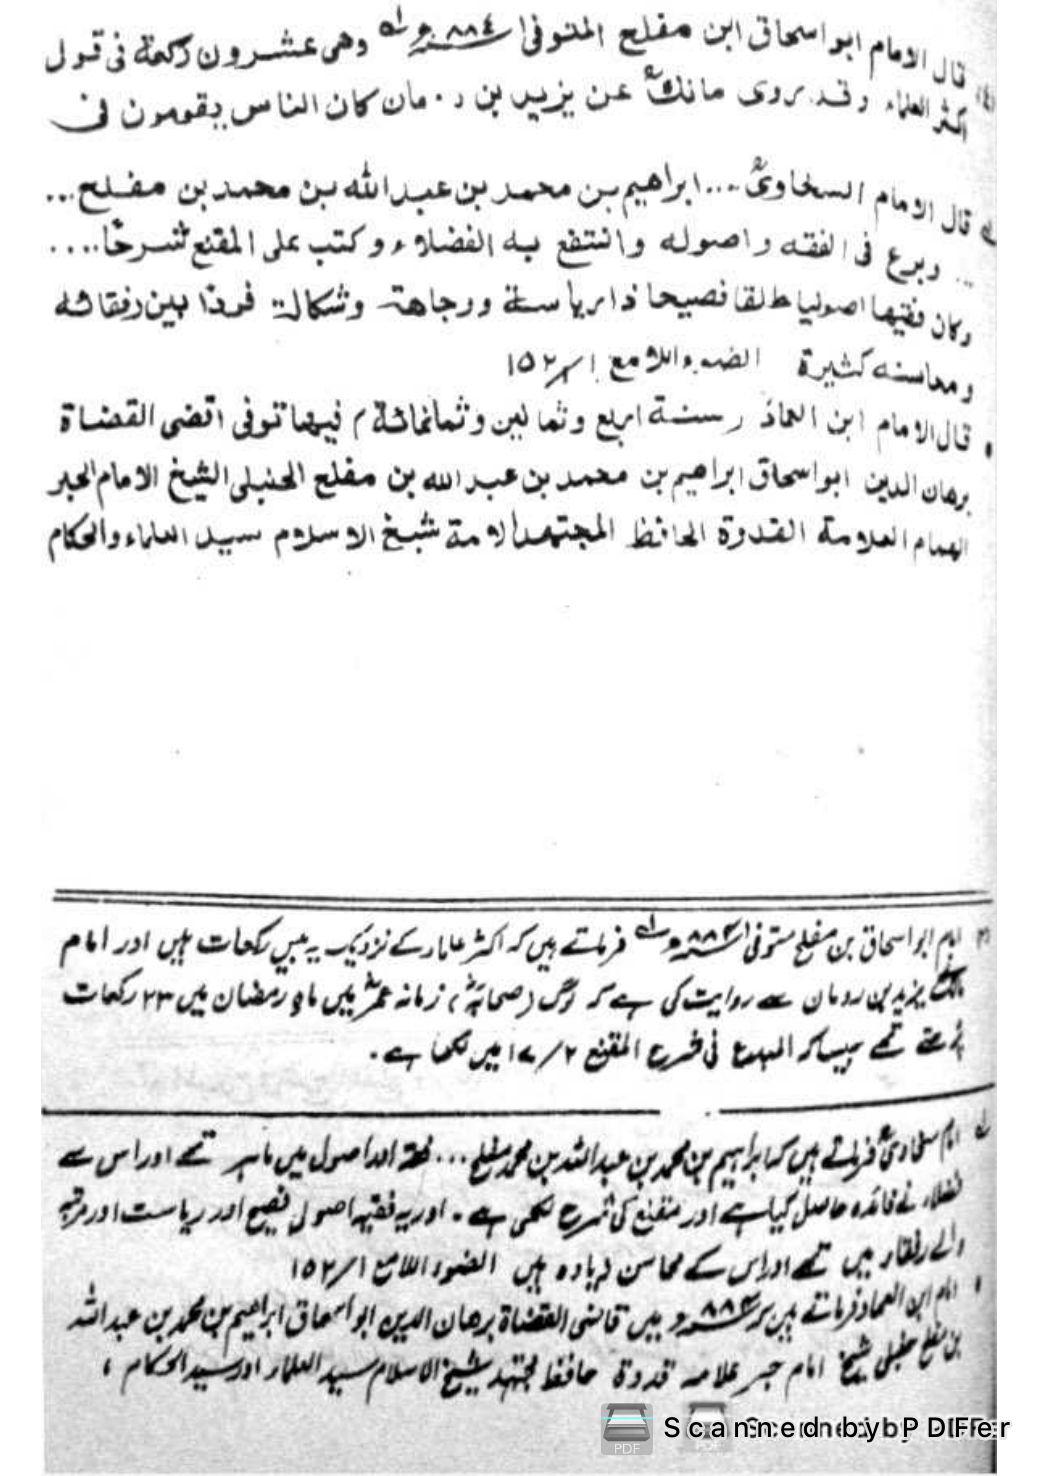 (٤) قال الامام ابو اسحاق ابن مفلح المتوفى ٨٨٤ھ وهى عشرون ركعة فى قول
اكثر العلماء وقد روى مالكؒ عن يزيد بن رومان كان الناس يقومون فى
له قال الامام السخاوىؒ ... ابراهيم بن محمد بن عبد الله بن محمد بن مفلح ...
... وبرع فى الفقه واصوله وانتفع به الفضلاء وكتب على المقنع شرحًا....
وكان فقيها اصوليا طلقا فصيحا ذا رياسة ووجاهة وشكالة فردا بين رفقائه
ومحاسنه كثيرة الضوء اللامع ١/١٥٢
• قال الامام ابن العمادؒ (سنة اربع وثمانين وثمانمائة) فيها توفى اقضى القضاة
برهان الدين ابو اسحاق ابراهيم بن محمد بن عبد الله بن مفلح الحنبلى الشيخ الامام الحبر
الهمام العلامة القدوة الحافظ المجتهد الامة شيخ الاسلام سيد العلماء والحكام
امام ابو اسحاق بن مفلح متوفى ٨٨٤ھ فرماتے ہیں کہ اکثر علماء کے نزدیک یہ بیس رکعات ہیں اور امام
مالکؒ یزید بن رومان سے روایت کی ہے کہ لوگ (صحابہؓ) زمانہ عمرؓ میں ماہ رمضان میں ٢٣ رکعات
پڑھتے تھے جیسا کہ المبدع فی شرح المقنع ٢/١٧ میں لکھا ہے۔
له امام سخاویؒ فرماتے ہیں کہ ابراہیم بن محمد بن عبد اللہ بن محمد مفلح ... فقہ اور اصول میں ماہر تھے اور اس سے
فضلاء نے فائدہ حاصل کیا ہے اور مقنع کی شرح لکھی ہے۔ اور یہ فقیہ اصولی فصیح اور ریاست اور مرتبہ
والے رفقاء میں تھے اور اس کے محاسن زیادہ ہیں الضوء اللامع ١/١٥٢
• امام ابن العماد فرماتے ہیں کہ ٨٨٤ھ میں قاضی القضاة برهان الدین ابو اسحاق ابراہیم بن محمد بن عبد اللہ
بن مفلح حنبلی شیخ امام حبر علامہ قدوة حافظ مجتہد شیخ الاسلام سید العلماء اور سید الحکام ،
Scanned by PDFer